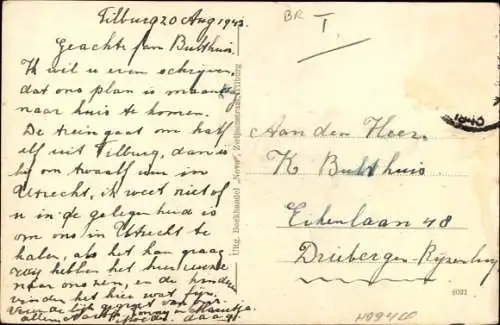 Tilburg 20 Aug 1943
Geachte fam Bulthuis.
Ik wil u even schrijven,
dat ons plan is maandag
naar huis te komen.
De trein gaat om half
elf uit Tilburg, dan is
hij om twaalf uur in
Utrecht, ik weet niet of
u in de gelegenheid is
om ons in Utrecht te
halen, als het kan graag
wij hebben het hier
naar ons zin, en de kinderen
vinden het hier wat fijn.
Vriendelijk gegroet van
allemaal
daag.
Uitg. Boekhandel „Nova", Tilburg
BR T.
1943
Aan den Heer.
K Bulthuis
Eikenlaan 48
Driebergen-Rijsenburg